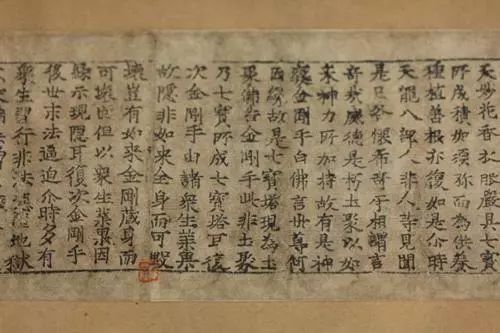 天妙花香衣服嚴具七寶
所成積如須弥而為供養
種植善根亦復如是尒時
天龍八部人非人等見聞
是已各懷希奇互相謂言
奇哉威德是朽土聚以如
来神力所加持故有是神
變金剛手白佛言世尊何
因緣故是七寶塔現為土
聚佛告金剛手此非土聚
乃七寶所成七寶塔耳復
次金剛手由諸衆生業果
故隱非如来全身而可毀
壞豈有如来金剛藏身而
可壞哉但以衆生業果因
緣示現隱耳復次金剛手
後世末法逼迫尒時多有
衆生習行非法應墮地獄